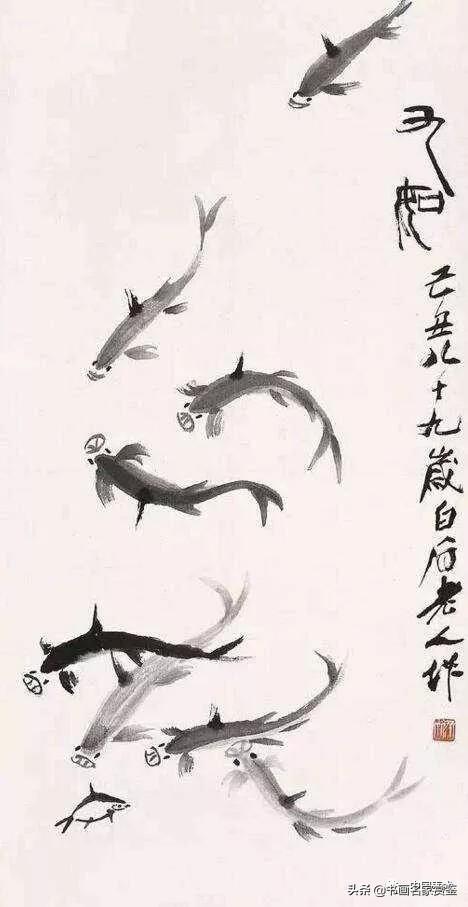 九如
己丑八十九歲白石老人作
头条 @书画名家赏鉴